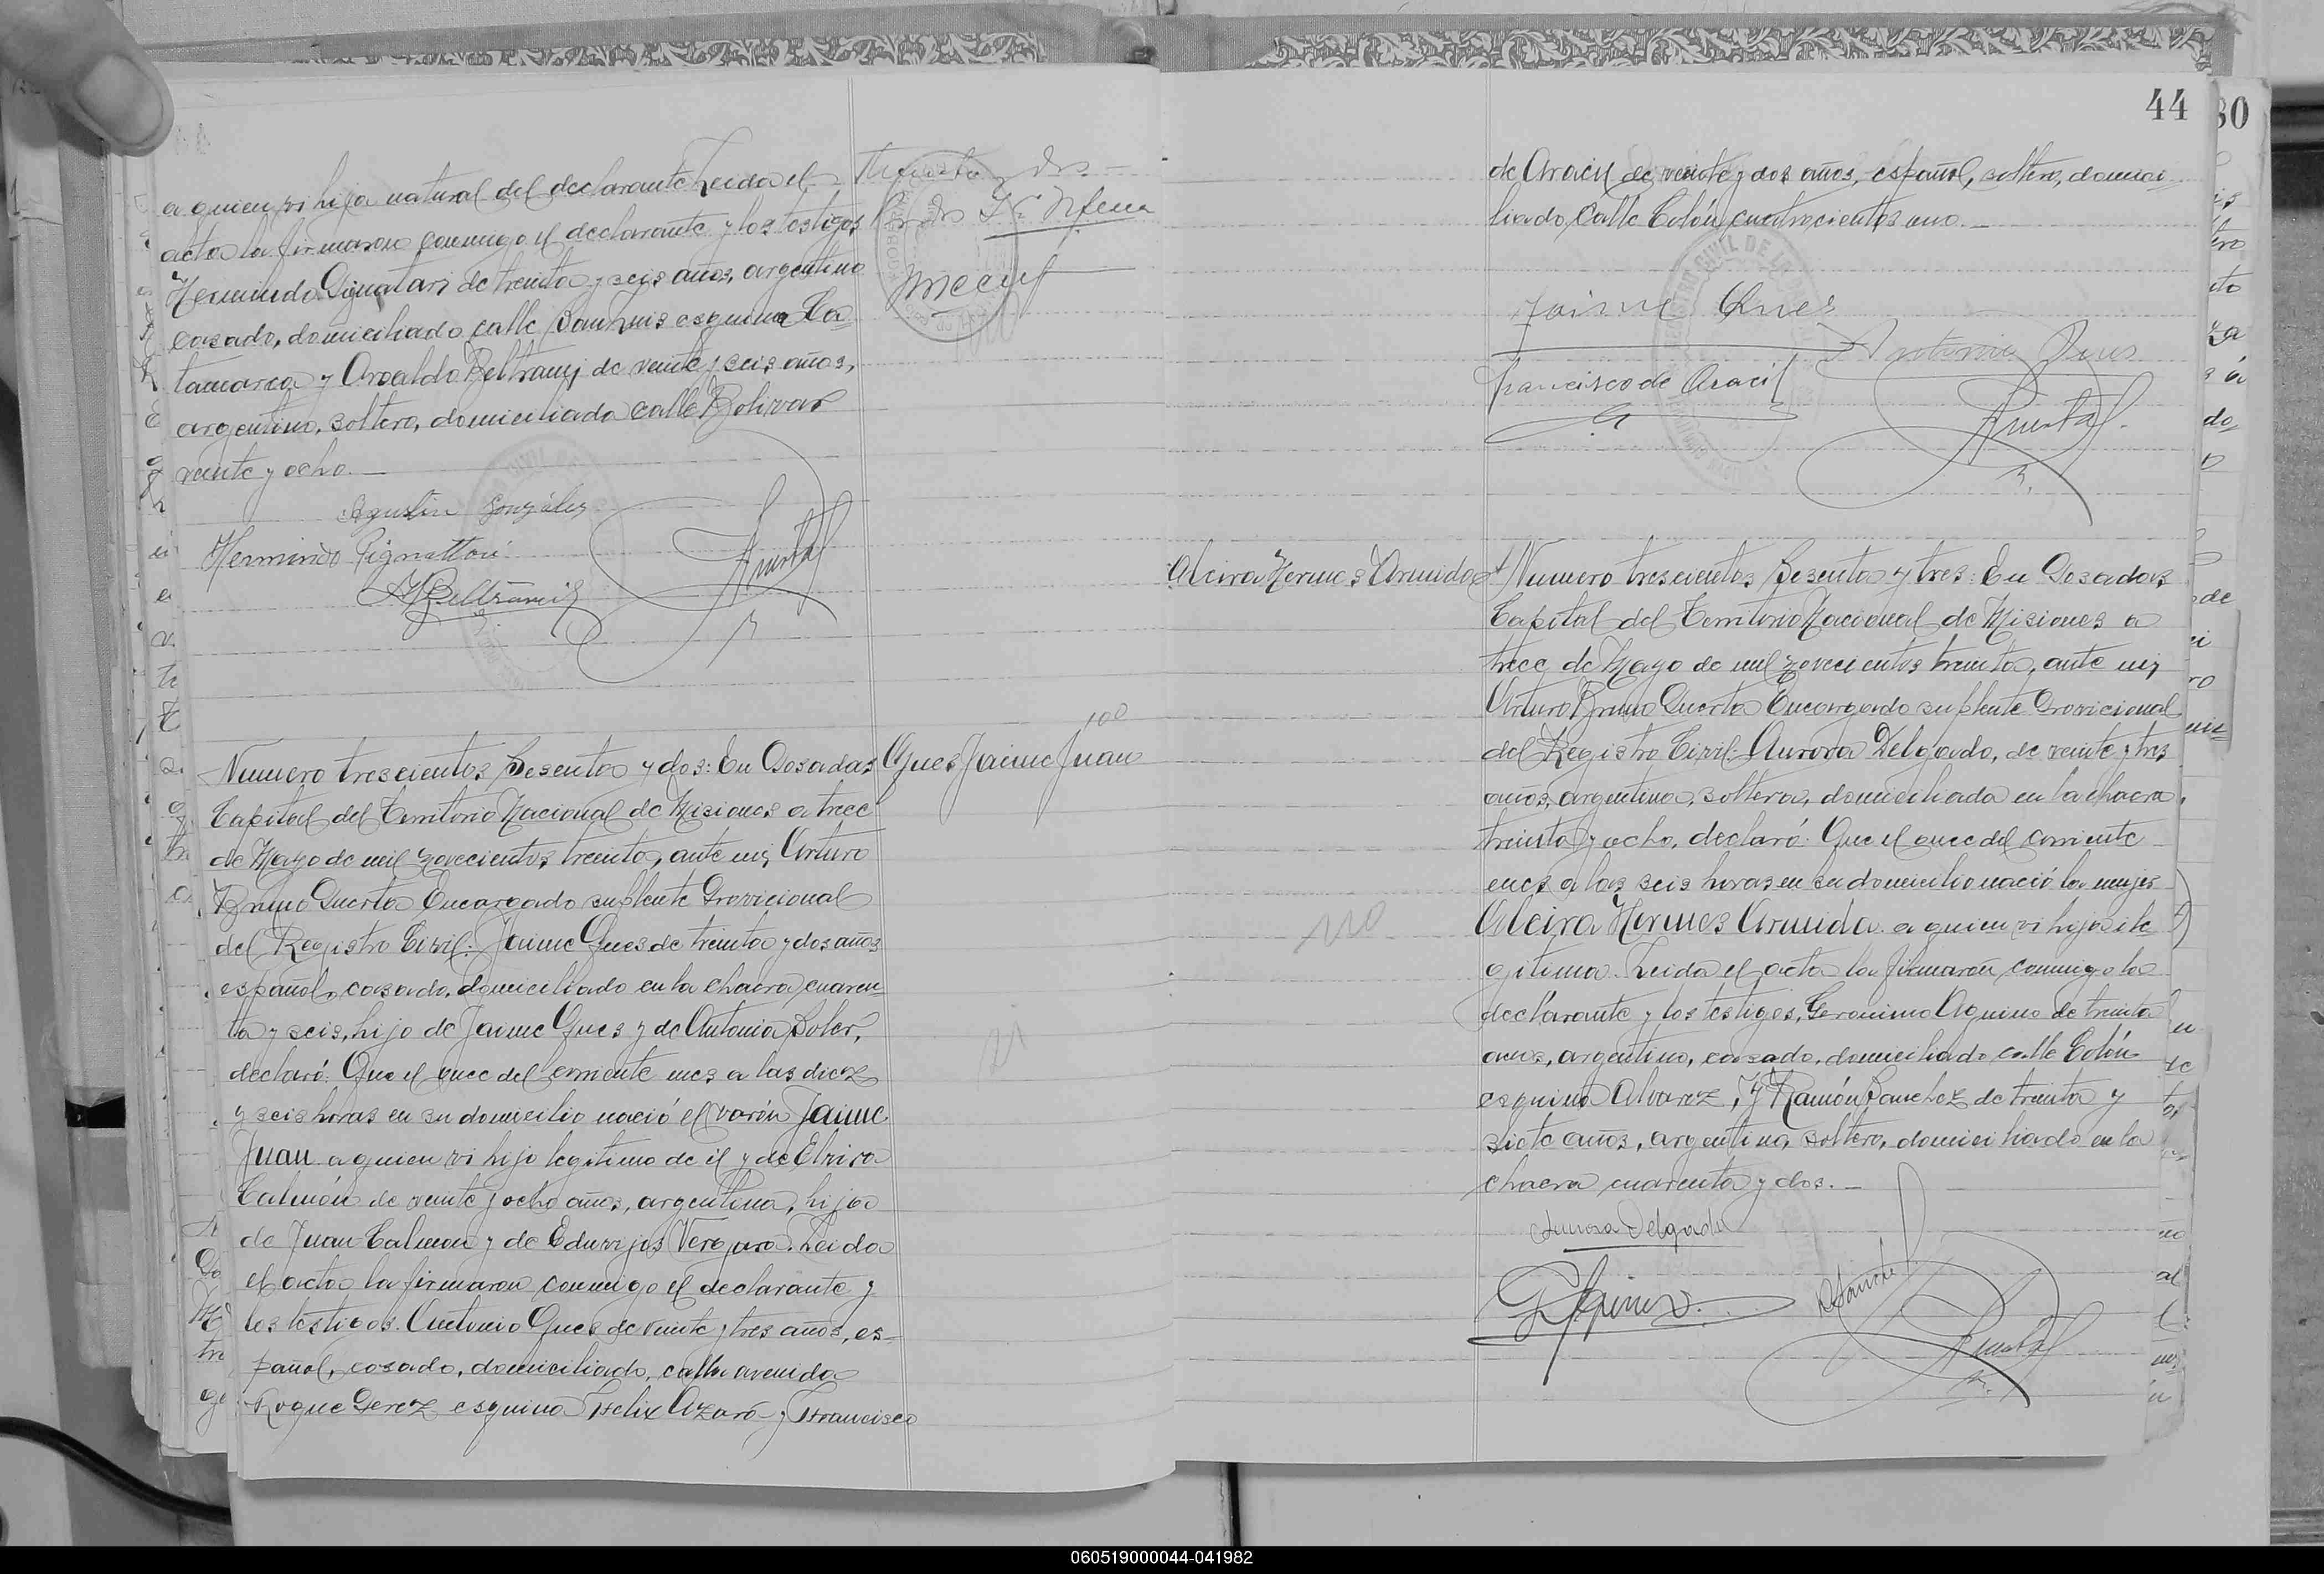 a quien vi hija natural del declarante Leida el
acta la firmaron conmigo el declarante y los testigos
Hermindo Pignatari de treinta y seis años, argentino
casado, domiciliado calle San Luis esquina Ca=
tamarca y Osvaldo Beltrami de veinte y seis años,
argentino, soltero, domiciliado calle Bolivar
veinte y ocho.—
Agustin Gonzalez
Hermindo Pignattari
Beltrami
Numero trescientos Sesenta y dos: En Posadas
Ques Jaime Juan
100
Capital del Territorio Nacional de Misiones a trece
de Mayo de mil novecientos treinta, ante mi, Arturo
Bruno Puerta Encargado suplente Provicional
del Registro Civil: Jaime Ques de treinta y dos años
español, casado, domiciliado en la chacra cuaren=
ta y seis, hijo de Jaime Ques y de Antonia Soler,
declaró: Que el once del corriente mes a las diez
y seis horas en su domicilio nació el varón Jaime
Juan a quien vi hijo legitimo de él y de Elvira
Calmón de veinte y ocho años, argentina, hija
de Juan Calmon y de Eduvijes Vergara. Leida
el acta la firmaron conmigo el declarante y
los testigos. Antonio Ques de veinte y tres años, es=
pañol, casado, domiciliado, calle avenida
Roque Perez esquina Felix Azara y Francisco
44
30
de Aracil de veinte y dos años, español, soltero, domici=
liado calle Colón cuatrocientos uno.—
Jaime Ques
Antonio Ques
Francisco de Aracil
Alcira Hermes Armida
Numero trescientos Sesenta y tres: En Posadas
Capital del Territorio Nacional de Misiones a
trece de Mayo de mil novecientos treinta, ante mi,
Arturo Bruno Puerta Encargado suplente Provicional
del Registro Civil: Aurora Delgado, de veinte y tres
años, argentina, soltera, domiciliada en la chacra
treinta y ocho, declaró: Que el once del corriente
mes a las seis horas en su domicilio nació la mujer
Alcira Hermes Armida a quien vi hija ile
gitima. Leida el acta la firmaron conmigo la
declarante y los testigos, Geronimo Aquino de treinta
años, argentino, casado, domiciliado calle Colón
esquina Alvarez, y Ramón Sanchez de treinta y
siete años, argentino, soltero, domiciliado en la
chacra cuarenta y dos.—
Aurora Delgado
G Aquino
R Sanchez
060519000044-041982